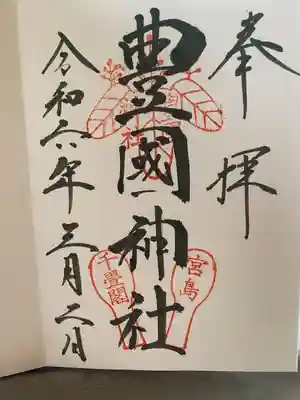 奉拝
豊國神社
令和六年三月二日
宮島
千畳閣